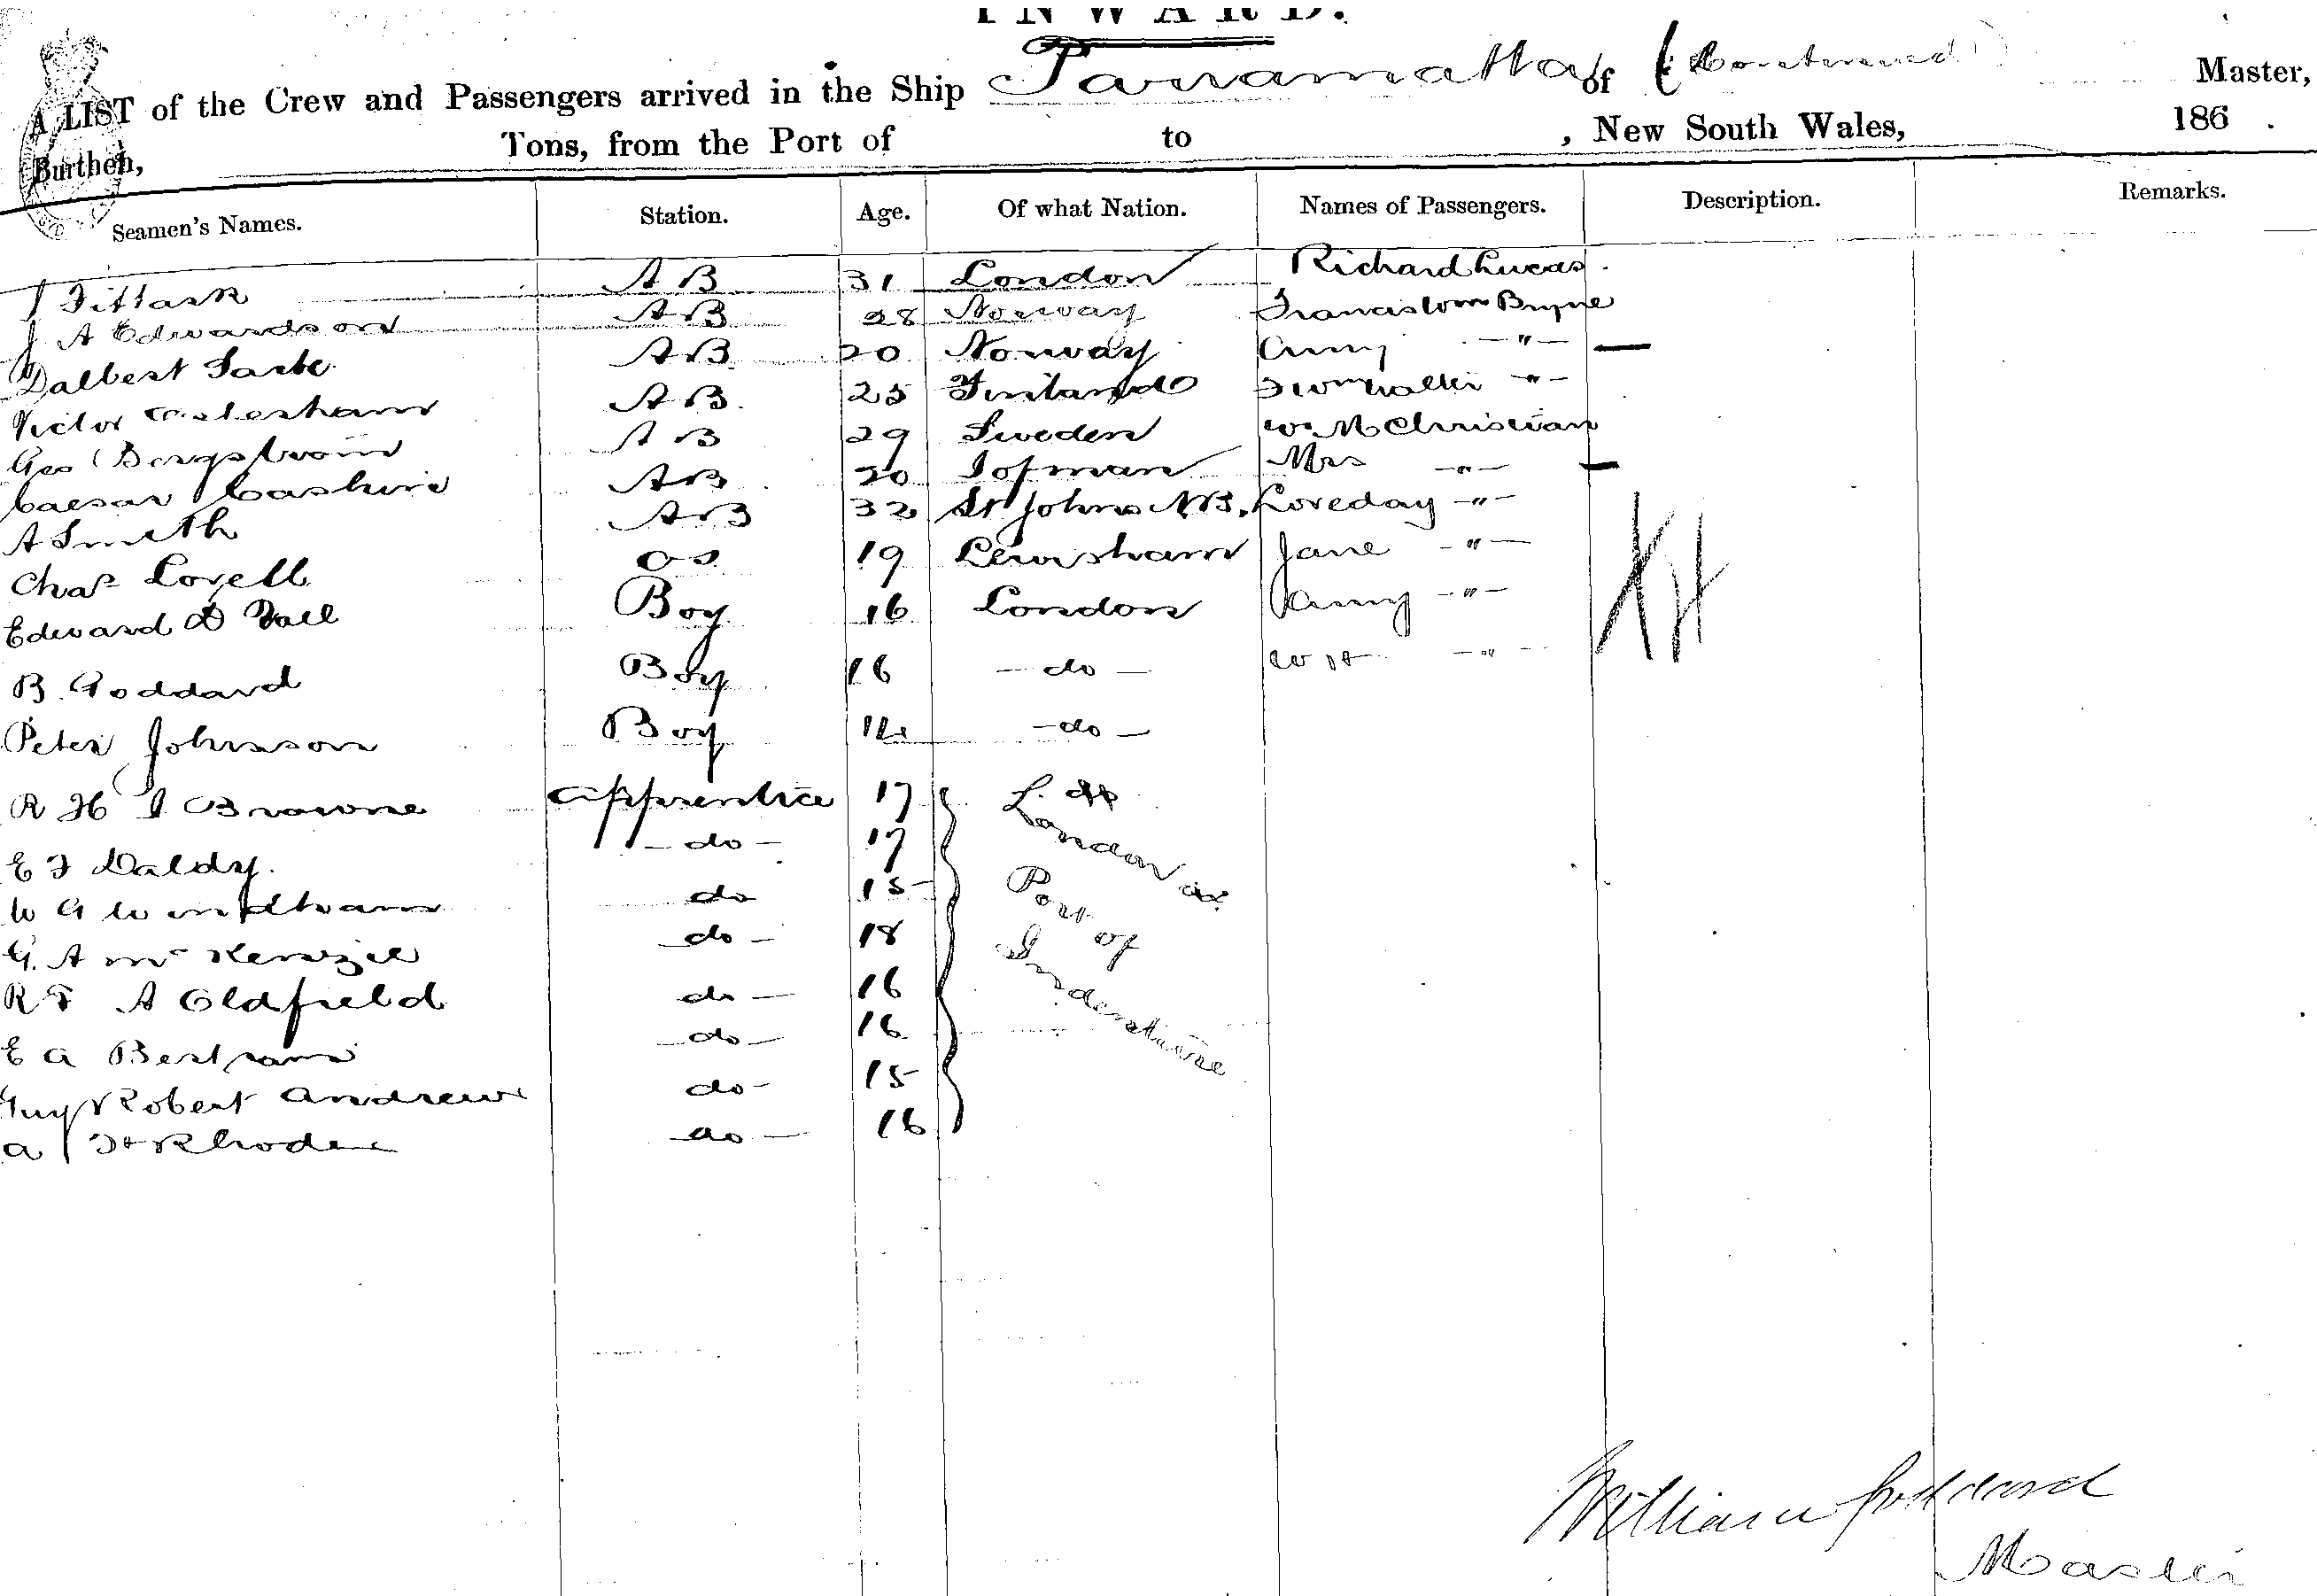 INWARD.
A LIST of the Crew and Passengers arrived in the Ship Parramatta of (Continued) Master,
Burthen, Tons, from the Port of to , New South Wales, 186 .
Seamen's Names. Station. Age. Of what Nation. Names of Passengers. Description. Remarks.
J A B 31 London Richard Lucas
J A Edwardson A B 28 Norway Francis Wm Bryne
Dalbert A B 20 Norway Amy — " — —
Victor A B 25 Finland F Wm Walter — " —
Geo Bergstrom A B 29 Sweden W. M Christian
Caesar A B 20 Mrs — " — —
A Smith A B 32 St Johns N B. Loveday — " —
Chas Lovell O S 19 Lewisham Jane — " —
Edward D Boy 16 London Amy — " —
B. Goddard Boy 16 — do — W H — " —
Peter Johnson Boy — do —
R H I Browne Apprentice 17 L.
E F Daldy. — do — 17 London as
W G Windham do 15 Port of
G. A Mc Kenzie do — 18 Indenture
R F A Oldfield do — 16
E A Bertram — do — 16
Guy Robert Andrew do — 15
A H Rhode do — 16
William Goddard
Master